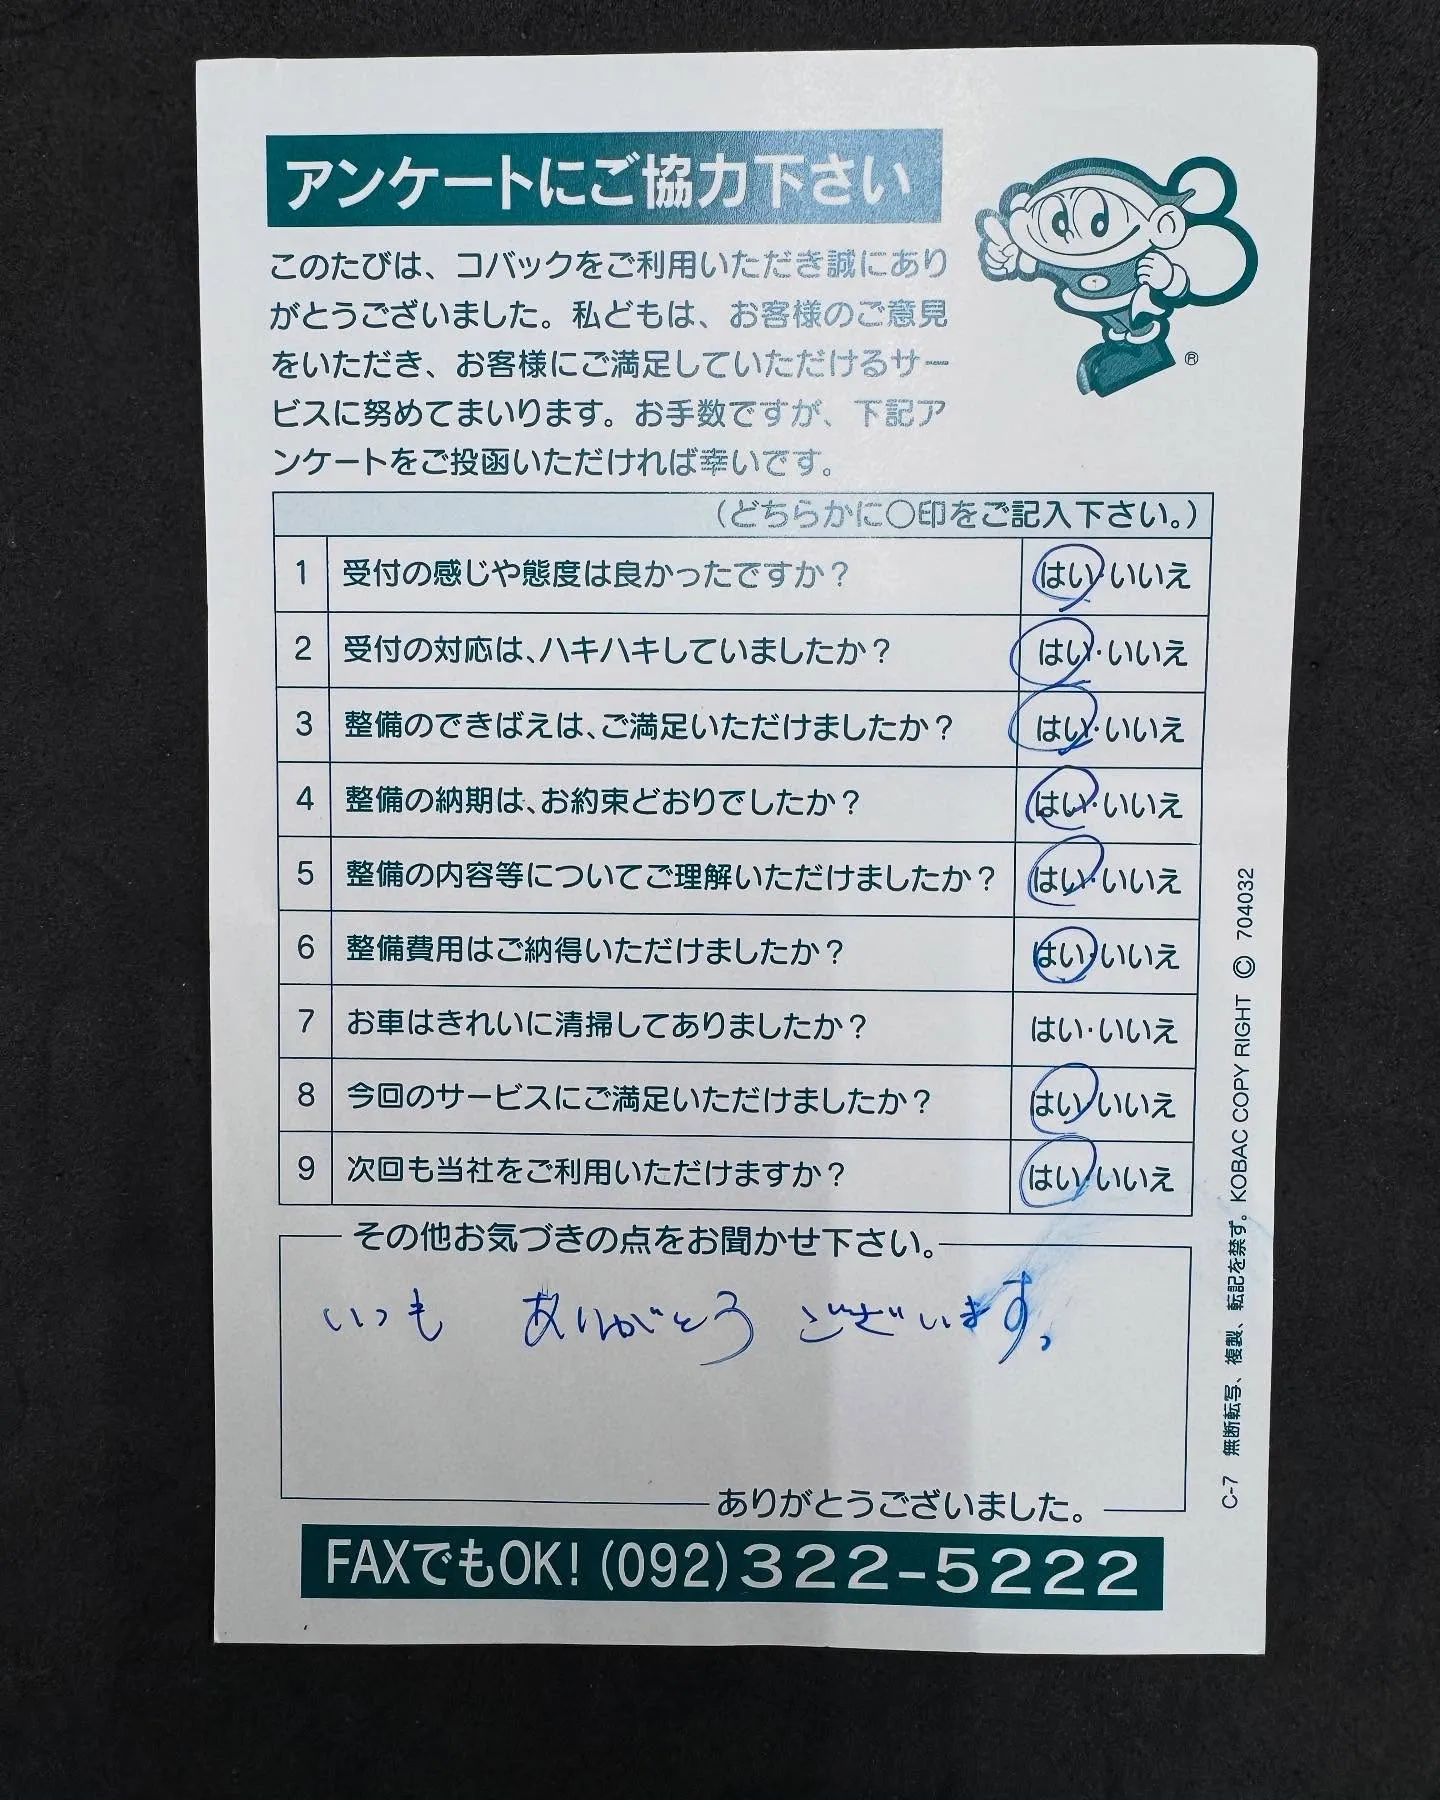 アンケートにご協力下さい
このたびは、コバックをご利用いただき誠にあり
がとうございました。私どもは、お客様のご意見
をいただき、お客様にご満足していただけるサー
ビスに努めてまいります。お手数ですが、下記ア
ンケートをご投函いただければ幸いです。
®
(どちらかに〇印をご記入下さい。)
1 受付の感じや態度は良かったですか? はい・いいえ
2 受付の対応は、ハキハキしていましたか? はい・いいえ
3 整備のできばえは、ご満足いただけましたか? はい・いいえ
4 整備の納期は、お約束どおりでしたか? はい・いいえ
5 整備の内容等についてご理解いただけましたか? はい・いいえ
6 整備費用はご納得いただけましたか? はい・いいえ
7 お車はきれいに清掃してありましたか? はい・いいえ
8 今回のサービスにご満足いただけましたか? はい・いいえ
9 次回も当社をご利用いただけますか? はい・いいえ
その他お気づきの点をお聞かせ下さい。
いつも ありがとう ございます。
ありがとうございました。
FAXでもOK!(092)322-5222
C-7 無断転写、複製、転記を禁ず。KOBAC COPY RIGHT © 704032